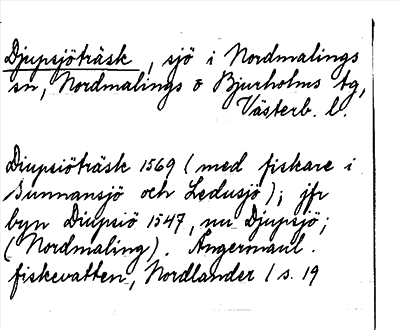 Djupsjöträsk, sjö i Nordmalings
sn, Nordmalings o Bjurholms tg,
Västerb. l.
Diupsiöträsk 1569 (med fiskare i
Sunnansjö och Ledusjö); jfr
byn Diupsiö 1547, nu Djupsjö;
(Nordmaling). Ångermanl.
fiskevatten, Nordlander 1 s. 19